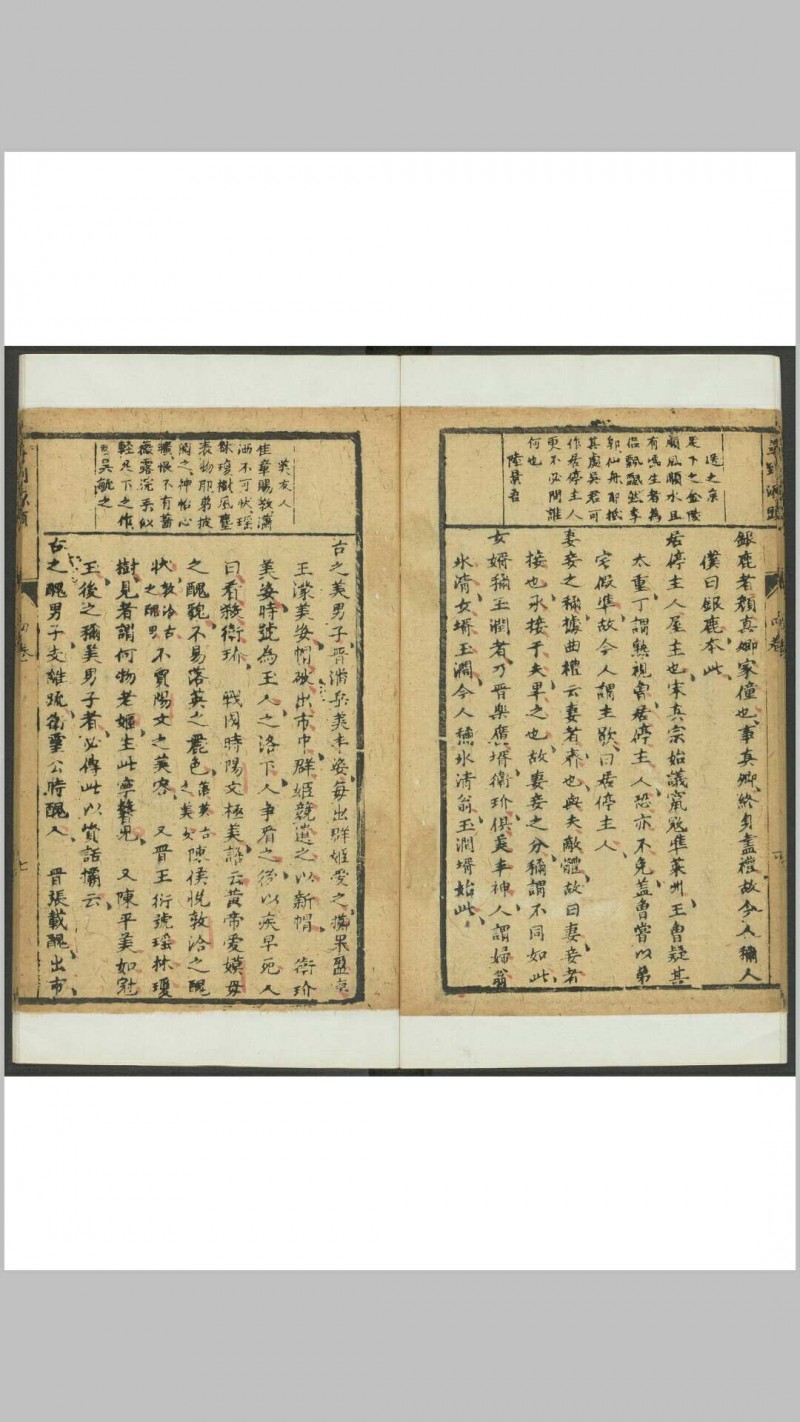 送之京
足下之金陵
順風順水且
有馮生者為
侶飄飄然李
郭仙舟耶抵
其處吳君可
作居停主人
更不必問誰
何也
陸景
銀鹿者顏真卿家僮也事真卿終身盡禮故今人稱人
僕曰銀鹿本此
居停主人屋主也宋真宗始議竄寇準萊州王曾疑其
太重丁謂熟視曾居停主人恐亦不免蓋曾嘗以第
宅假準故今人謂主歇曰居停主人
妻妾之稱據曲禮云妻者齊也與夫敵體故曰妻妾者
接也承接于夫卑之也故妻妾之分稱謂不同如此
女婿稱玉潤者乃晉樂廣婿衛玠俱美丰神人謂婦翁
氷清女婿玉潤今人穗氷清翁玉潤婿始此
美友人
佳章賜教瀟
洒不可狀瑶
林瓊樹風塵
表物耶弟披
閱之神怡心
曠恨不有薔
薇露浣手以
輕足下之作
吳敏之
古之美男子晉潘岳美丰姿每出群姬愛之擲果盈
王濛美姿帽破出市中群姬競遺之以新帽 衛玠
美姿時號為玉人之洛下人爭看之後以疾早死人
曰看殺衛玠 戰國時陽文極美語云黃帝愛嫫母
之醜貌不易落英之麗色落英古之美女陳侯悅敦洽之醜
狀敦洽古之醜男不買陽文之美容 又晉王衍號瑶林瓊
樹見者謂何物老嫗生此寧馨兒 又陳平美如冠
玉後之稱美男子者必傳此以資話欛云
古之醜男子支離疏衛靈公時醜人 晉張載醜出市
四卷
七